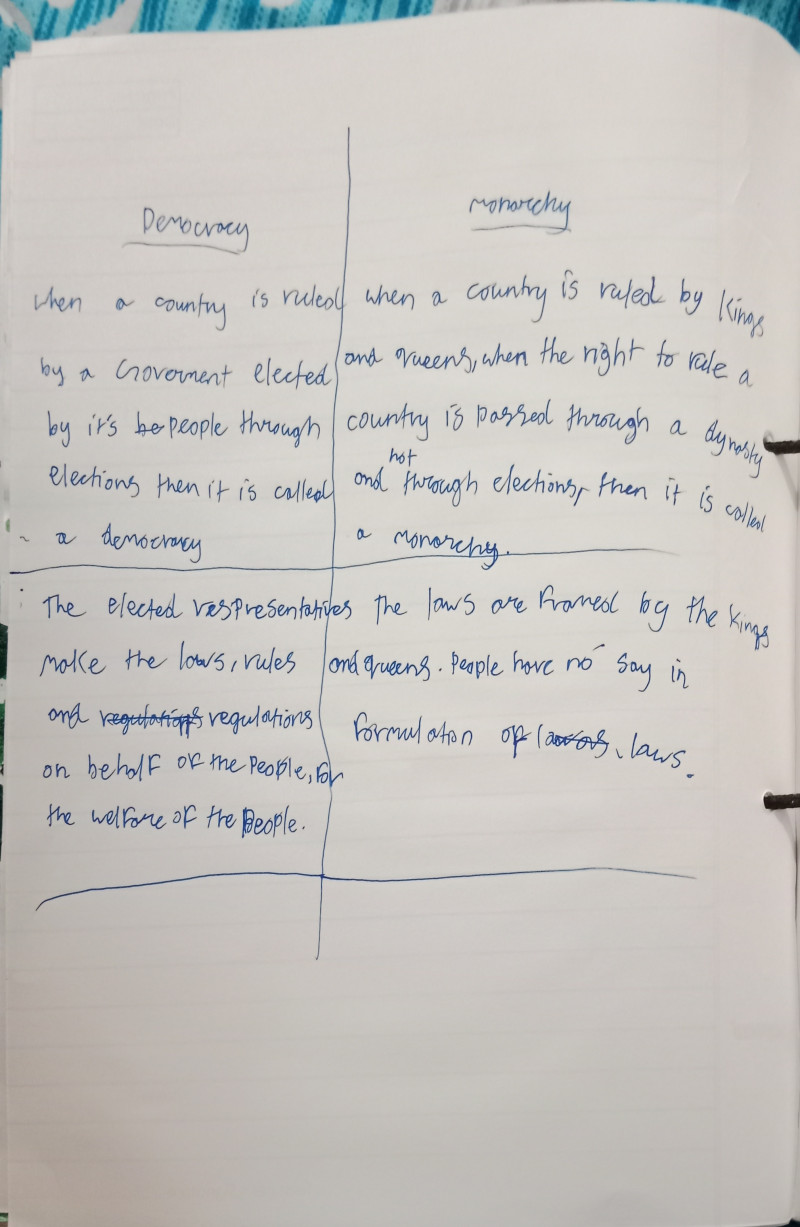 Democracy
when a country is ruled
by a Government elected
by it's people through
elections then it is called
a democracy
The elected respresentatives
make the laws, rules
and regulations regulations
on behalf of the people, for
the welfare of the people.
monarchy
when a country is ruled by Kings
and queens, when the right to rule a
country is passed through a dynasty
and not through elections, then it is called
a monarchy.
The laws are framed by the kings
and queens. People have no say in
formulation of laws.